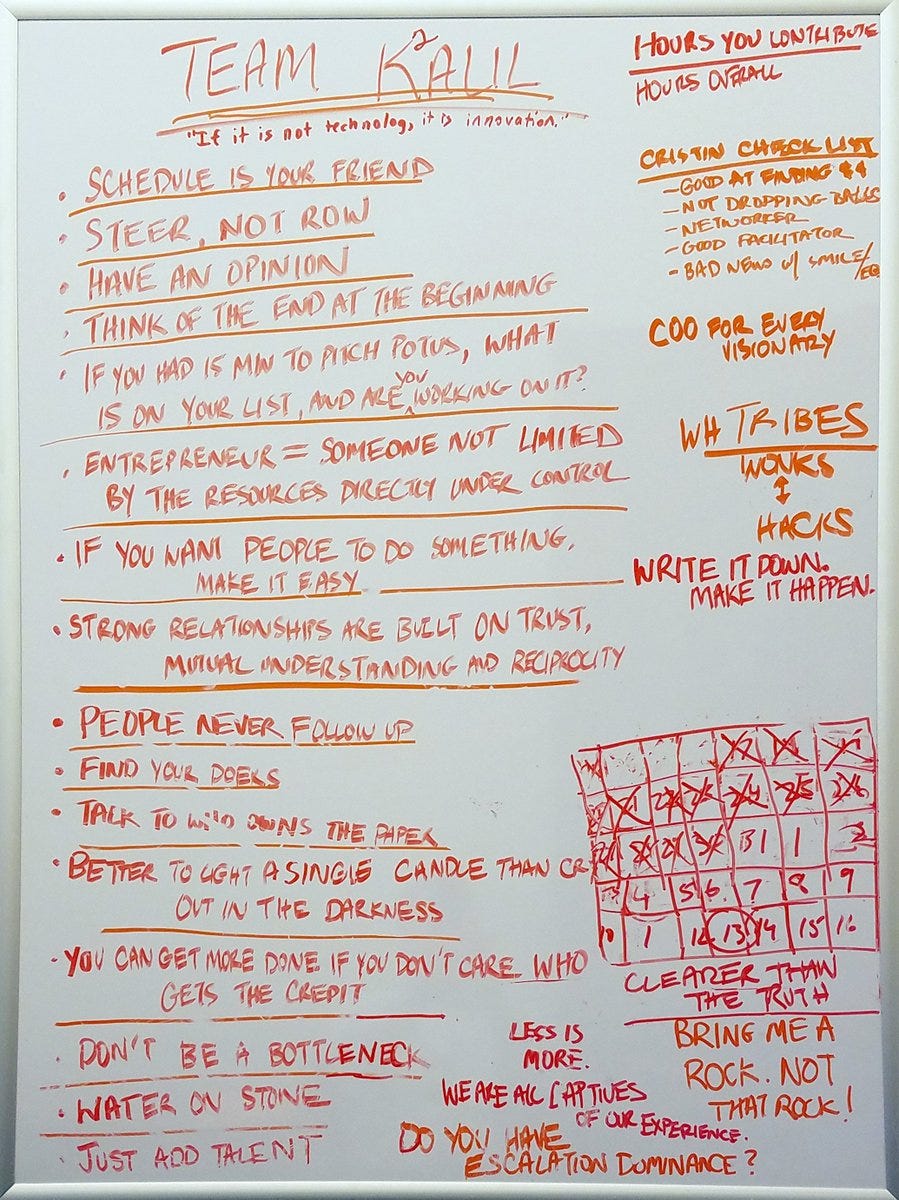 TEAM K²AUL
"If it is not technology, it is innovation."
• SCHEDULE IS YOUR FRIEND
• STEER, NOT ROW
• HAVE AN OPINION
• THINK OF THE END AT THE BEGINNING
• IF YOU HAD 15 MIN TO PITCH POTUS, WHAT
IS ON YOUR LIST, AND ARE YOU WORKING ON IT?
• ENTREPRENEUR = SOMEONE NOT LIMITED
BY THE RESOURCES DIRECTLY UNDER CONTROL
• IF YOU WANT PEOPLE TO DO SOMETHING,
MAKE IT EASY
• STRONG RELATIONSHIPS ARE BUILT ON TRUST,
MUTUAL UNDERSTANDING AND RECIPROCITY
• PEOPLE NEVER FOLLOW UP
• FIND YOUR DOERS
• TALK TO WHO OWNS THE PAPER
• BETTER TO LIGHT A SINGLE CANDLE THAN CR
OUT IN THE DARKNESS
• YOU CAN GET MORE DONE IF YOU DON'T CARE WHO
GETS THE CREDIT
• DON'T BE A BOTTLENECK
• WATER ON STONE
• JUST ADD TALENT
HOURS YOU CONTRIBUTE
HOURS OVERALL
CRISTIN CHECK LIST
- GOOD AT FINDING $$
- NOT DROPPING BALLS
- NETWORKER
- GOOD FACILITATOR
- BAD NEWS W/ SMILE/EQ
COO FOR EVERY
VISIONARY
WH TRIBES
WONKS
↕
HACKS
WRITE IT DOWN.
MAKE IT HAPPEN.
31 1
4 5 6 7 8 9
10 1 12 13 14 15 16
CLEARER THAN
THE TRUTH
BRING ME A
ROCK. NOT
THAT ROCK!
LESS IS
MORE.
WE ARE ALL CAPTIVES
OF OUR EXPERIENCE.
DO YOU HAVE
ESCALATION DOMINANCE?